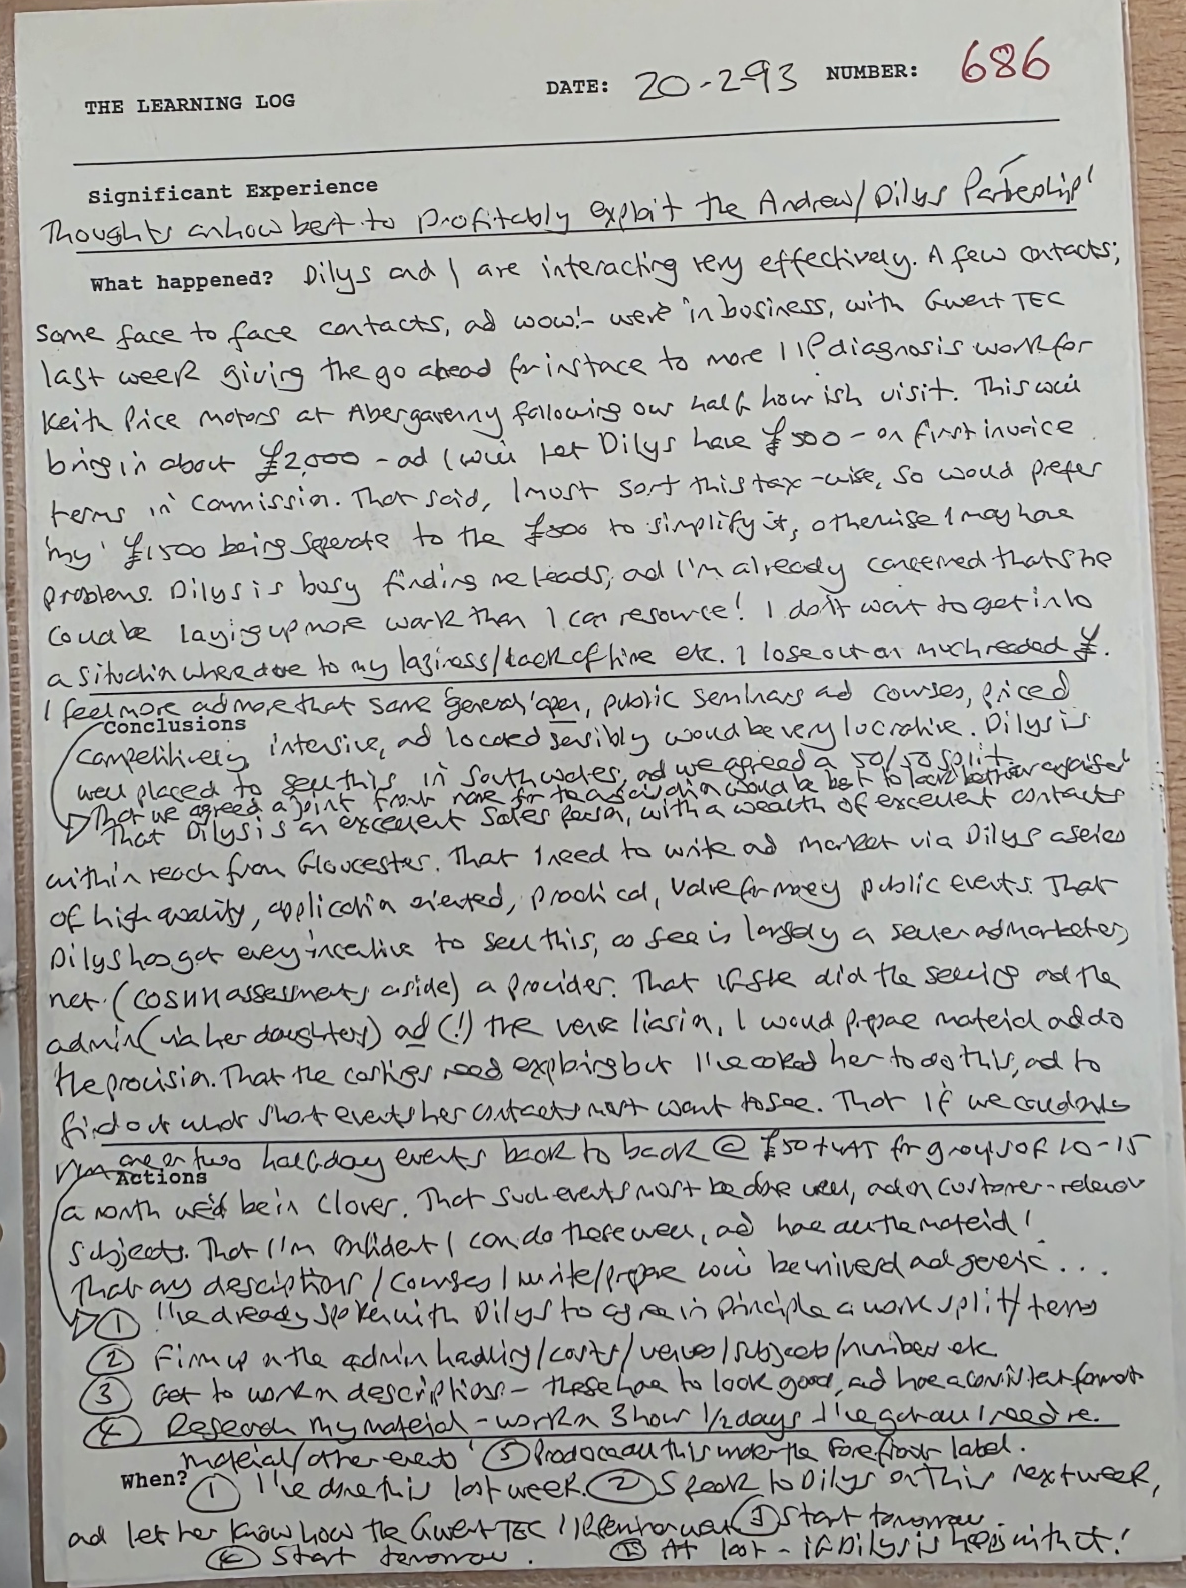 THE LEARNING LOG DATE: 20-2-93 NUMBER: 686
Significant Experience
Thoughts on how best to profitably exploit the Andrew/Dilys Partnership'
What happened? Dilys and I are interacting very effectively. A few contacts;
some face to face contacts, ad wow!- were 'in business, with Gwent TEC
last week giving the go ahead for instace to more IIP diagnosis work for
Keith Price Motors at Abergavenny following our half hour ish visit. This will
bring in about £2,000 - ad I will let Dilys have £500 - on first invoice
terms in commission. That said, I must sort this tax-wise, so would prefer
'my' £1500 being seperate to the £500 to simplify it, otherwise I may have
problems. Dilys is busy finding me leads, ad I'm already concerned that she
could be laying up more work than I can resource! I don't want to get into
a situation where due to my laziness/lack of time etc. I lose out on much needed £.
I feel more ad more that some general 'open, public seminars ad courses, priced
Conclusions
competitively, intensive, ad located sensibly would be very lucrative. Dilys is
well placed to sell this in South Wales, ad we agreed a 50/50 split.
That we agreed a joint front name for the association would be best to look better organised'
That Dilys is an excellent sales person, with a wealth of excellent contacts
within reach from Gloucester. That I need to write ad market via Dilys a series
of high quality, application oriented, practical, value for money public events. That
Dilys has got every incentive to sell this, as she is largely a seller ad marketer,
not (COSHH assessments aside) a provider. That if she did the selling ad the
admin (via her daughters) ad (!) the venue liasin, I would prepae mateial ad do
the provision. That the costings need exploring but I've asked her to do this, ad to
find out what short events her contacts most want to see. That if we could
run one or two half-day events back to back @ £50 + VAT for groups of 10-15
Actions
a month we'd be in clover. That such events must be done well, ad on customer-relevant
subjects. That I'm confident I can do these well, ad have all the mateial!
That any descriptions/courses I write/prepae will be universal ad generic...
① I've already spoken with Dilys to agree in principle a work split/terms
② Firm up on the admin handling/costs/venues/subjects/numbers etc
③ Get to work on descriptions - these have to look good, ad have a consistent format
④ Research my material - work on 3 hour 1/2 days I've got all I need re.
material/other events' ⑤ Produce all this under the Forefront label.
When? ① I've done this last week. ② Speak to Dilys on this next week,
ad let her know how the Gwent TEC IIP went ③ Start tomorrow.
④ Start tomorrow. ⑤ At last - if Dilys is happy with it!